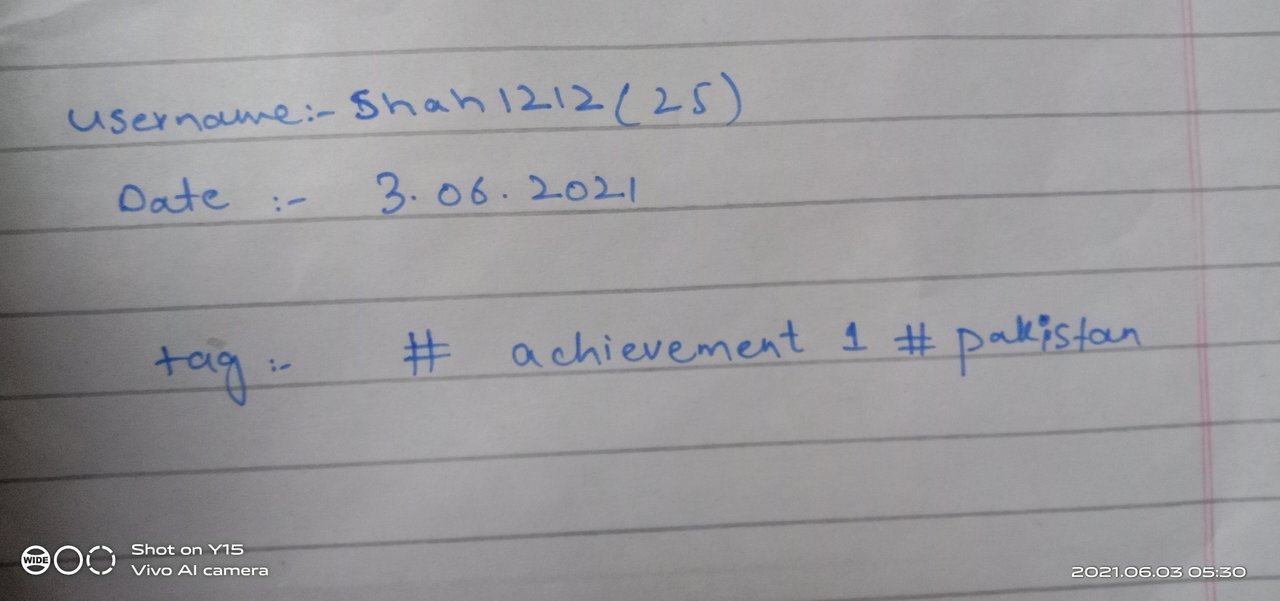 Username:- Shah1212 (25)
Date :- 3.06.2021
tag :- # achievement 1 # pakistan
WIDE
Shot on Y15
Vivo AI camera
2021.06.03 05:30